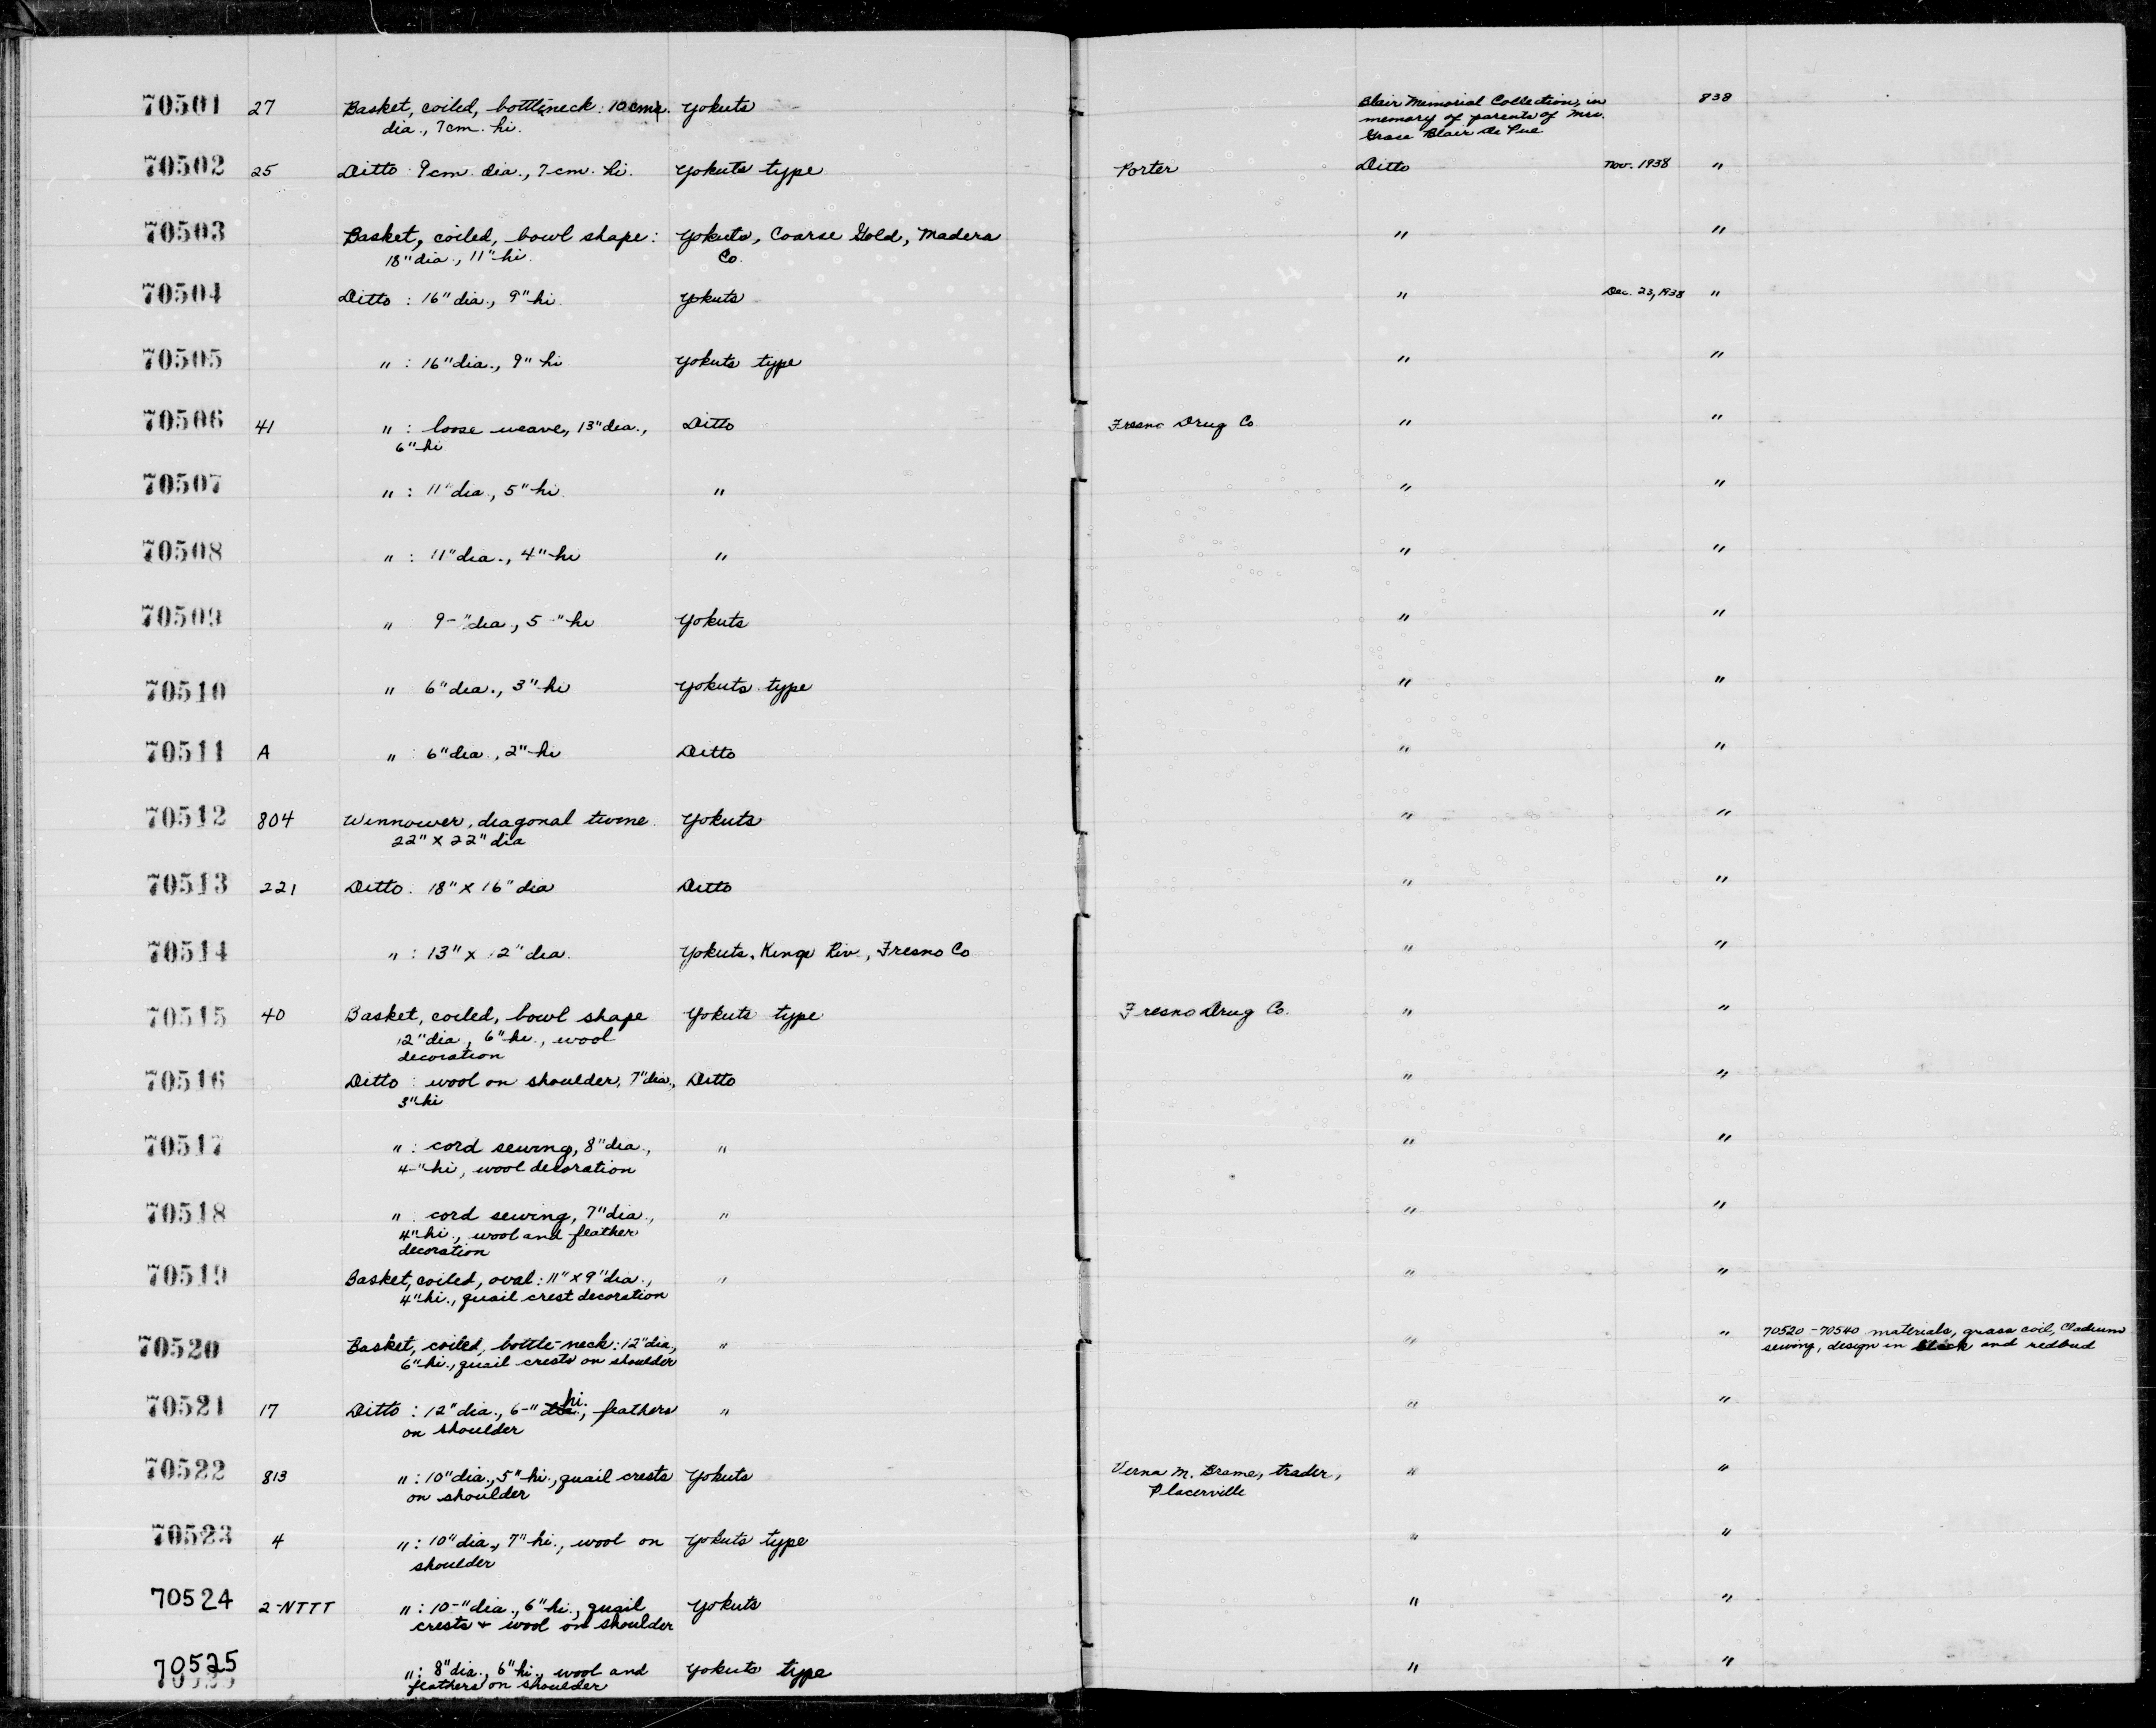 70501 27 Basket, coiled, bottleneck: 10 cm. Yokuts Blair Memorial Collection, in 838
dia., 7cm. hi. memory of parents of Mrs.
Grace Blair De Pue
70502 25 Ditto : 9cm. dia., 7cm. hi. Yokuts type Porter Ditto Nov. 1938 "
70503 Basket, coiled, bowl shape: Yokuts, Coarse Gold, Madera " "
18" dia., 11" hi. Co.
70504 Ditto : 16" dia., 9" hi Yokuts " Dec. 23, 1938 "
70505 " : 16" dia., 9" hi Yokuts type " "
70506 41 " : loose weave, 13" dia., Ditto Fresno Drug Co " "
6" hi
70507 " : 11" dia., 5" hi. " " "
70508 " : 11" dia., 4" hi " " "
70509 " 9-" dia., 5-" hi Yokuts " "
70510 " 6" dia., 3" hi Yokuts type " "
70511 A " 6" dia., 2" hi Ditto " "
70512 804 Winnower, diagonal twine Yokuts " "
22" x 22" dia
70513 221 Ditto. 18" x 16" dia Ditto " "
70514 " : 13" x 12" dia. Yokuts, Kings Riv., Fresno Co " "
70515 40 Basket, coiled, bowl shape Yokuts type Fresno Drug Co. " "
12" dia., 6" hi., wool
decoration
70516 Ditto : wool on shoulder, 7" dia., Ditto " "
3" hi
70517 " : cord sewing, 8" dia., " " "
4-" hi, wool decoration
70518 " : cord sewing, 7" dia., " " "
4" hi., wool and feather
decoration
70519 Basket, coiled, oval: 11" x 9" dia., " " "
4" hi., quail crest decoration
70520 Basket, coiled, bottle-neck: 12" dia., " " " 70520-70540 materials, grass coil, Cladium
6" hi., quail crests on shoulder sewing, design in black and redbud
70521 17 Ditto : 12" dia., 6-" hi., feathers " " "
on shoulder
70522 813 " : 10" dia., 5" hi., quail crests Yokuts Verna M. Brame, trader, " "
on shoulder Placerville
70523 4 " : 10" dia., 7" hi., wool on Yokuts type " "
shoulder
70524 2-NTTT " : 10-" dia., 6" hi., quail Yokuts " "
crests + wool on shoulder
70525 " : 8" dia., 6" hi., wool and Yokuts type " "
feathers on shoulder